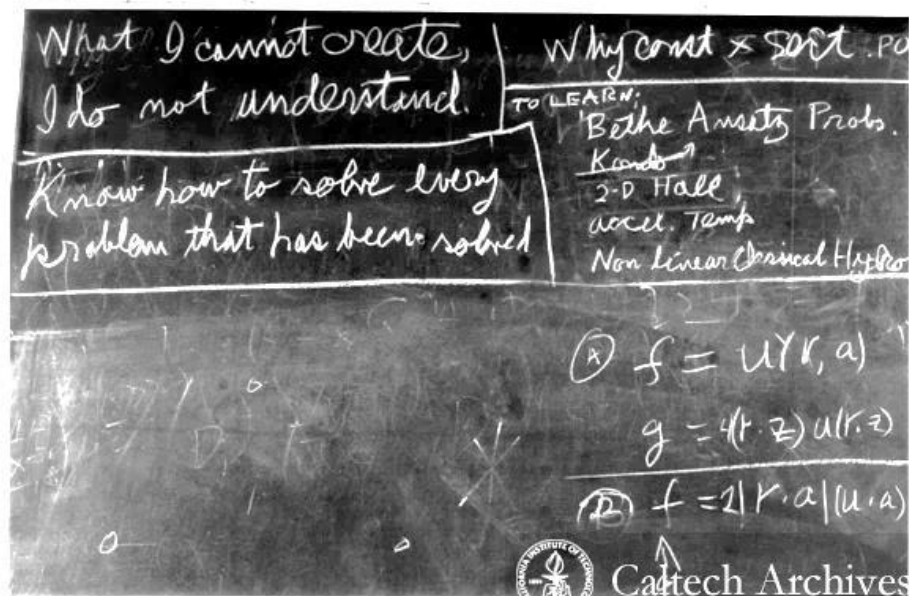 What I cannot create,
I do not understand.
Know how to solve every
problem that has been solved
Why const × sort . PO
TO LEARN:
Bethe Ansatz Probs.
Kondo
2-D Hall
accel. Temp
Non linear Classical Hydro
Ⓐ f = u(r, a)
g = 4(r·z) u(r,z)
Ⓑ f = 2|r·a|(u·a)
CALIFORNIA INSTITUTE OF TECHNOLOGY
Caltech Archives